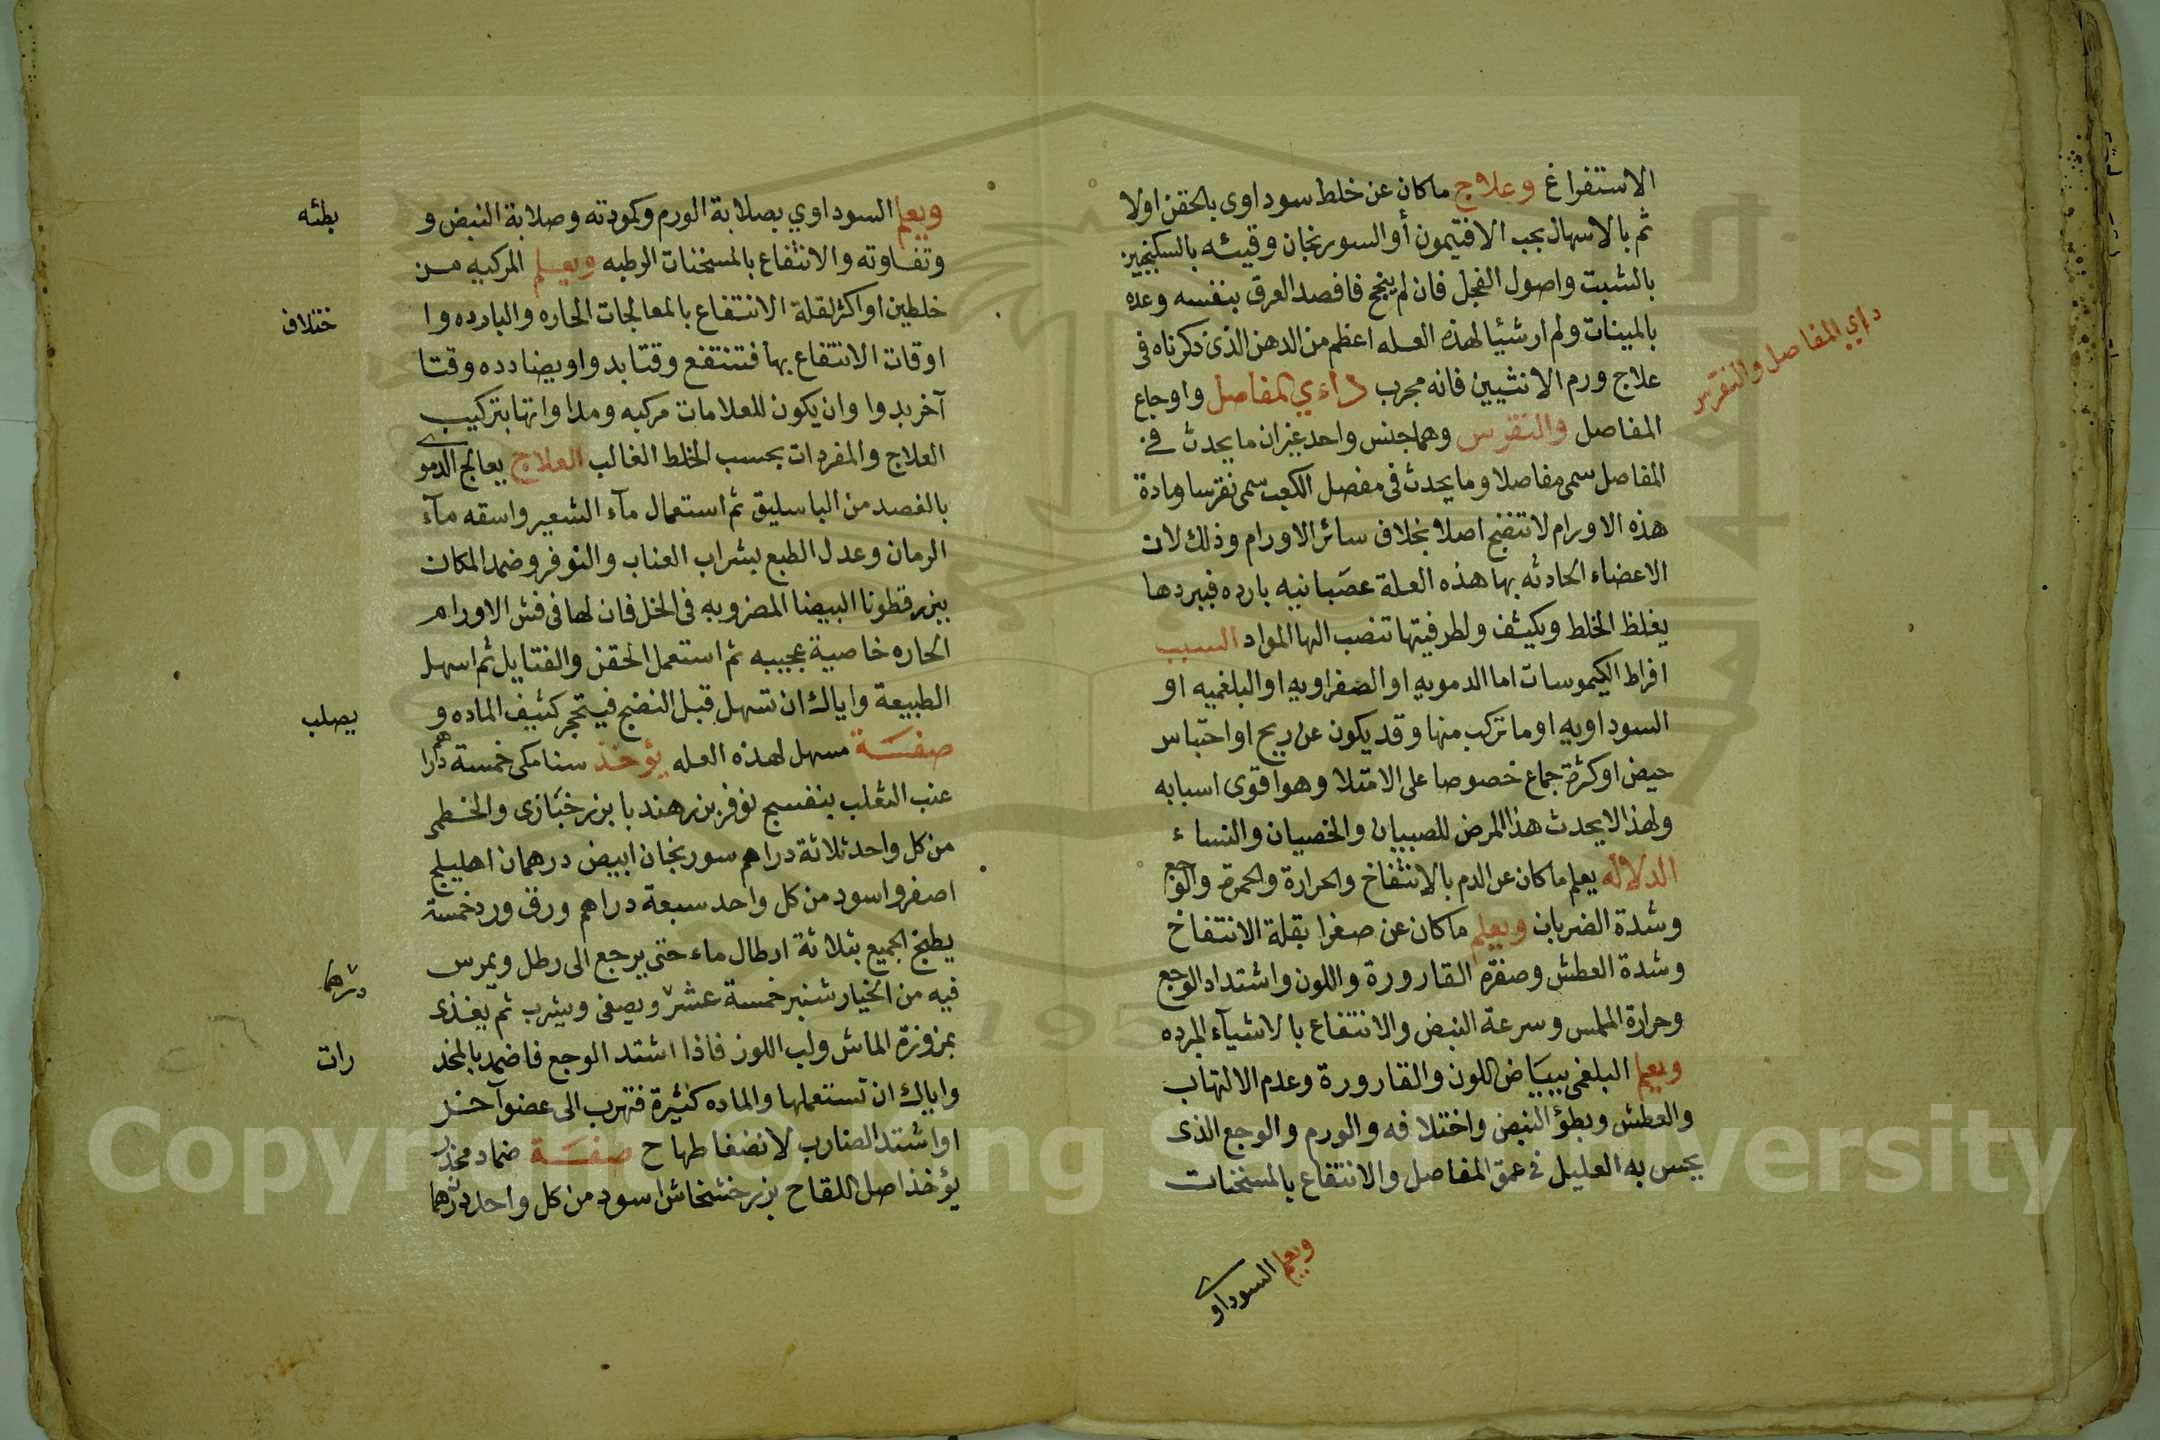 الاستفراغ وعلاج ماكان عن خلط سوداوى بالحقن اولا
ثم بالاسهال بحب الافتيمون أو السورنجان وقيئه بالسكنجبين
بالشبت واصول الفجل فان لم ينجح فافصد العرق بنفسه وعده
بالمينات ولم ار شيئا لهذه العله اعظم من الدهن الذى ذكرناه فى
علاج ورم الانثيين فانه مجرب داءي المفاصل واوجاع
داءي المفاصل والنقرس
المفاصل والنقرس وهما جنس واحد غير ان ما يحدث فى
المفاصل سمى مفاصلا وما يحدث فى مفصل الكعب سمى نقرسا ومادة
هذه الاورام لا تنضج اصلا بخلاف سائر الاورام وذلك لان
الاعضاء الحادثه بها هذه العلة عصبانيه بارده فبردها
يغلظ الخلط ويكيثف ولطرفيتها تنصب الها المواد السبب
افراط الكيموسات اما الدمويه او الصفراويه او البلغميه او
السوداويه او ما تركب منها وقد يكون عن ريح او احتباس
حيض او كثرة جماع خصوصا على الامتلا وهو اقوى اسبابه
ولهذا لا يحدث هذا المرض للصبيان والخصيان والنساء
الدلاله يعلم ما كان عن الدم بالانتفاخ والحرارة والحمرة والوجع
وشدة الضربان ويعلم ماكان عن صفرا بقلة الانتفاخ
وشدة العطش وصفرة القارورة واللون واشتداد الوجع
وحرارة الملمس وسرعة النبض والانتفاع بالاشيآء المبرده
ويعلم البلغمى ببياض اللون والقارورة وعدم الالتهاب
والعطش وبطؤ النبض واختلافه والورم والوجع الذى
يحس به العليل فى عمق المفاصل والانتفاع بالمسخنات
ويعلم السوداوي
ويعلم السوداوي بصلابة الورم وكمودته وصلابة النبض و بطئه
وتفاوته والانتفاع بالمسخنات الرطبه ويعلم المركبه من
خلطين او اكثر لقلة الانتفاع بالمعالجات الحاره والبارده وا ختلاف
اوقات الانتفاع بها فتنتفع وقتا بدوا ويضادده وقتا
آخر بدوا وان يكون للعلامات مركبه ومداواتها بتركيب
العلاج والمفردات بحسب الخلط الغالب العلاج يعالج الدموي
بالفصد من الباسليق ثم استعمال مآء الشعير واسقه مآء
الرمان وعدل الطبع بشراب العناب والنوفر وضمد المكان
ببزر قطونا البيضا المضروبه فى الخل فان لها فى فش الاورام
الحاره خاصية عجيبه ثم استعمل الحقن والفتايل ثم اسهل
الطبيعة واياك ان تسهل قبل النضج فيتحجر كثيف الماده و يصلب
صفة مسهل لهذه العله يؤخذ سنا مكى خمسة دراهم
عنب الثعلب بنفسج نوفر بزر هندبا بزر خبازى والخطمى
من كل واحد ثلاثة دراهم سورنجان ابيض درهمان اهليلج
اصفر واسود من كل واحد سبعة دراهم ورق ورد خمسة
يطبخ الجميع بثلاثة ارطال ماء حتى يرجع الى رطل ويمرس
فيه من الخيار شنبر خمسة عشر درهما ويصفى ويشرب ثم يغذى
بمزورة الماش ولب اللوز فاذا اشتد الوجع فاضمد بالمخد رات
واياك ان تستعملها والماده كثيرة فتهرب الى عضو آخر
او اشتد الضارب لانضغاطها ح صفة ضماد مخدر
يؤخذ اصل اللقاح بزر خشخاش اسود من كل واحد درهما
Copyright © King Saud University
1957